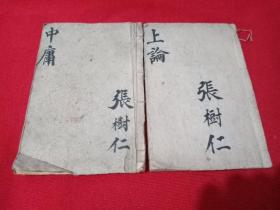 中庸
張樹仁
上論
張樹仁